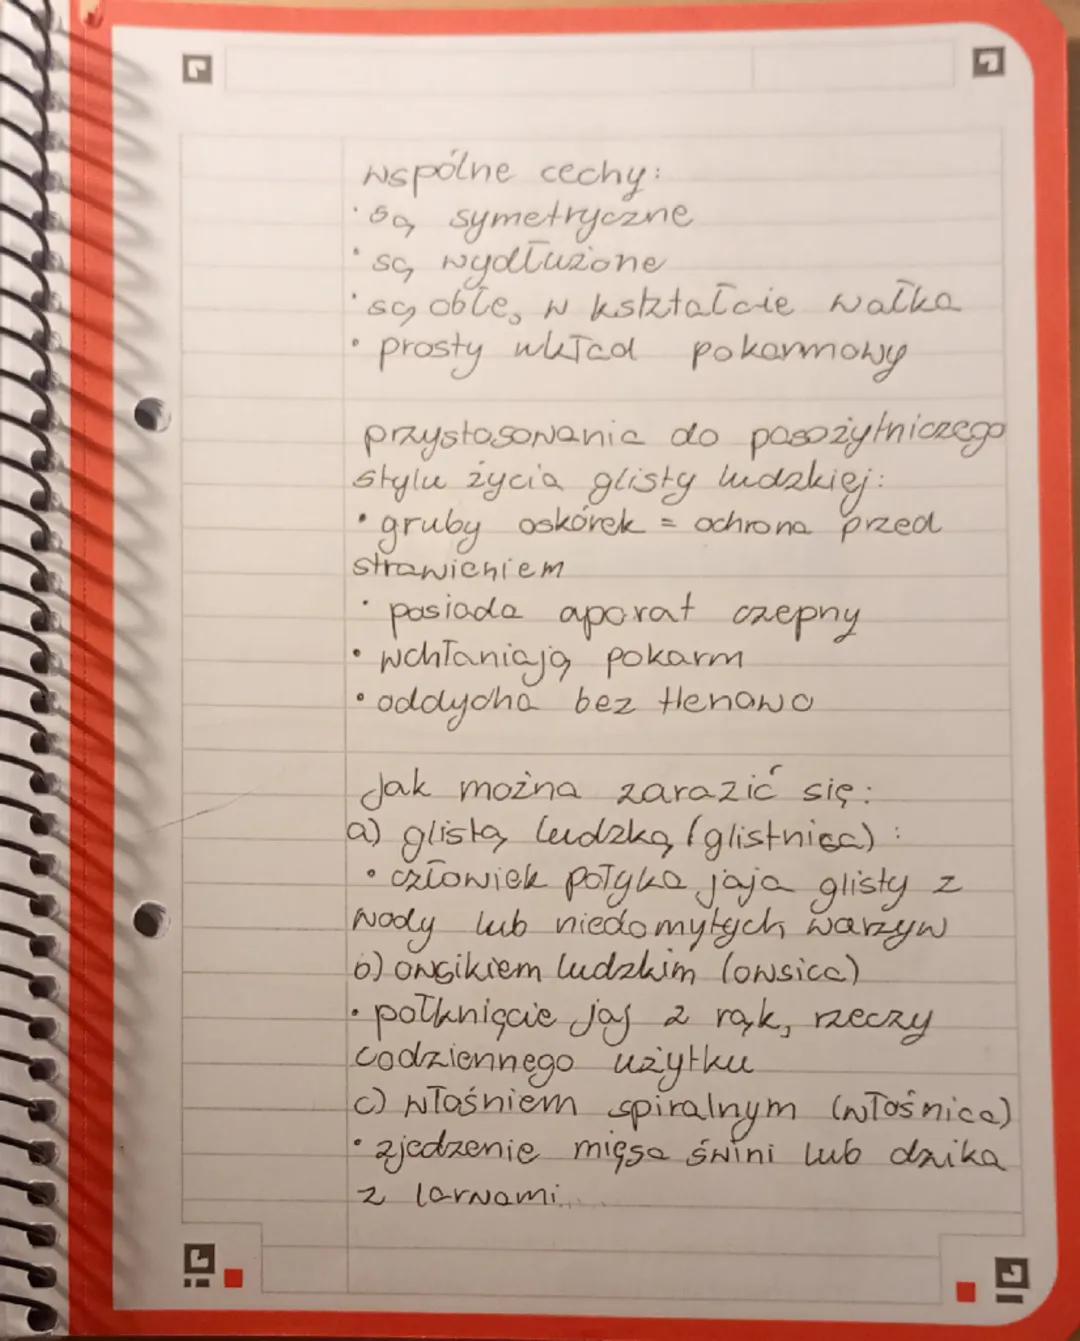 wspólne cechy:
· są symetryczne
· są wydłużone
· są obłe, w ksłztałcie wałka
· prosty wkład pokarmowy
przystosowania do pasożytniczego
stylu życia glisty ludzkiej:
· gruby oskórek = ochrona przed
strawieniem
· posiada aparat czepny
· wchłaniają pokarm
· oddycha bez tlenowo
Jak można zarazić się:
a) glistą ludzką (glistnica):
· człowiek połyka jaja glisty z
wody lub niedomytych warzyw
b) owsikiem ludzkim (owsica)
· połknięcie jaj z rąk, rzeczy
codziennego użytku
c) włośniem spiralnym (włośnica)
· zjedzenie mięsa świni lub dzika
z larwami...